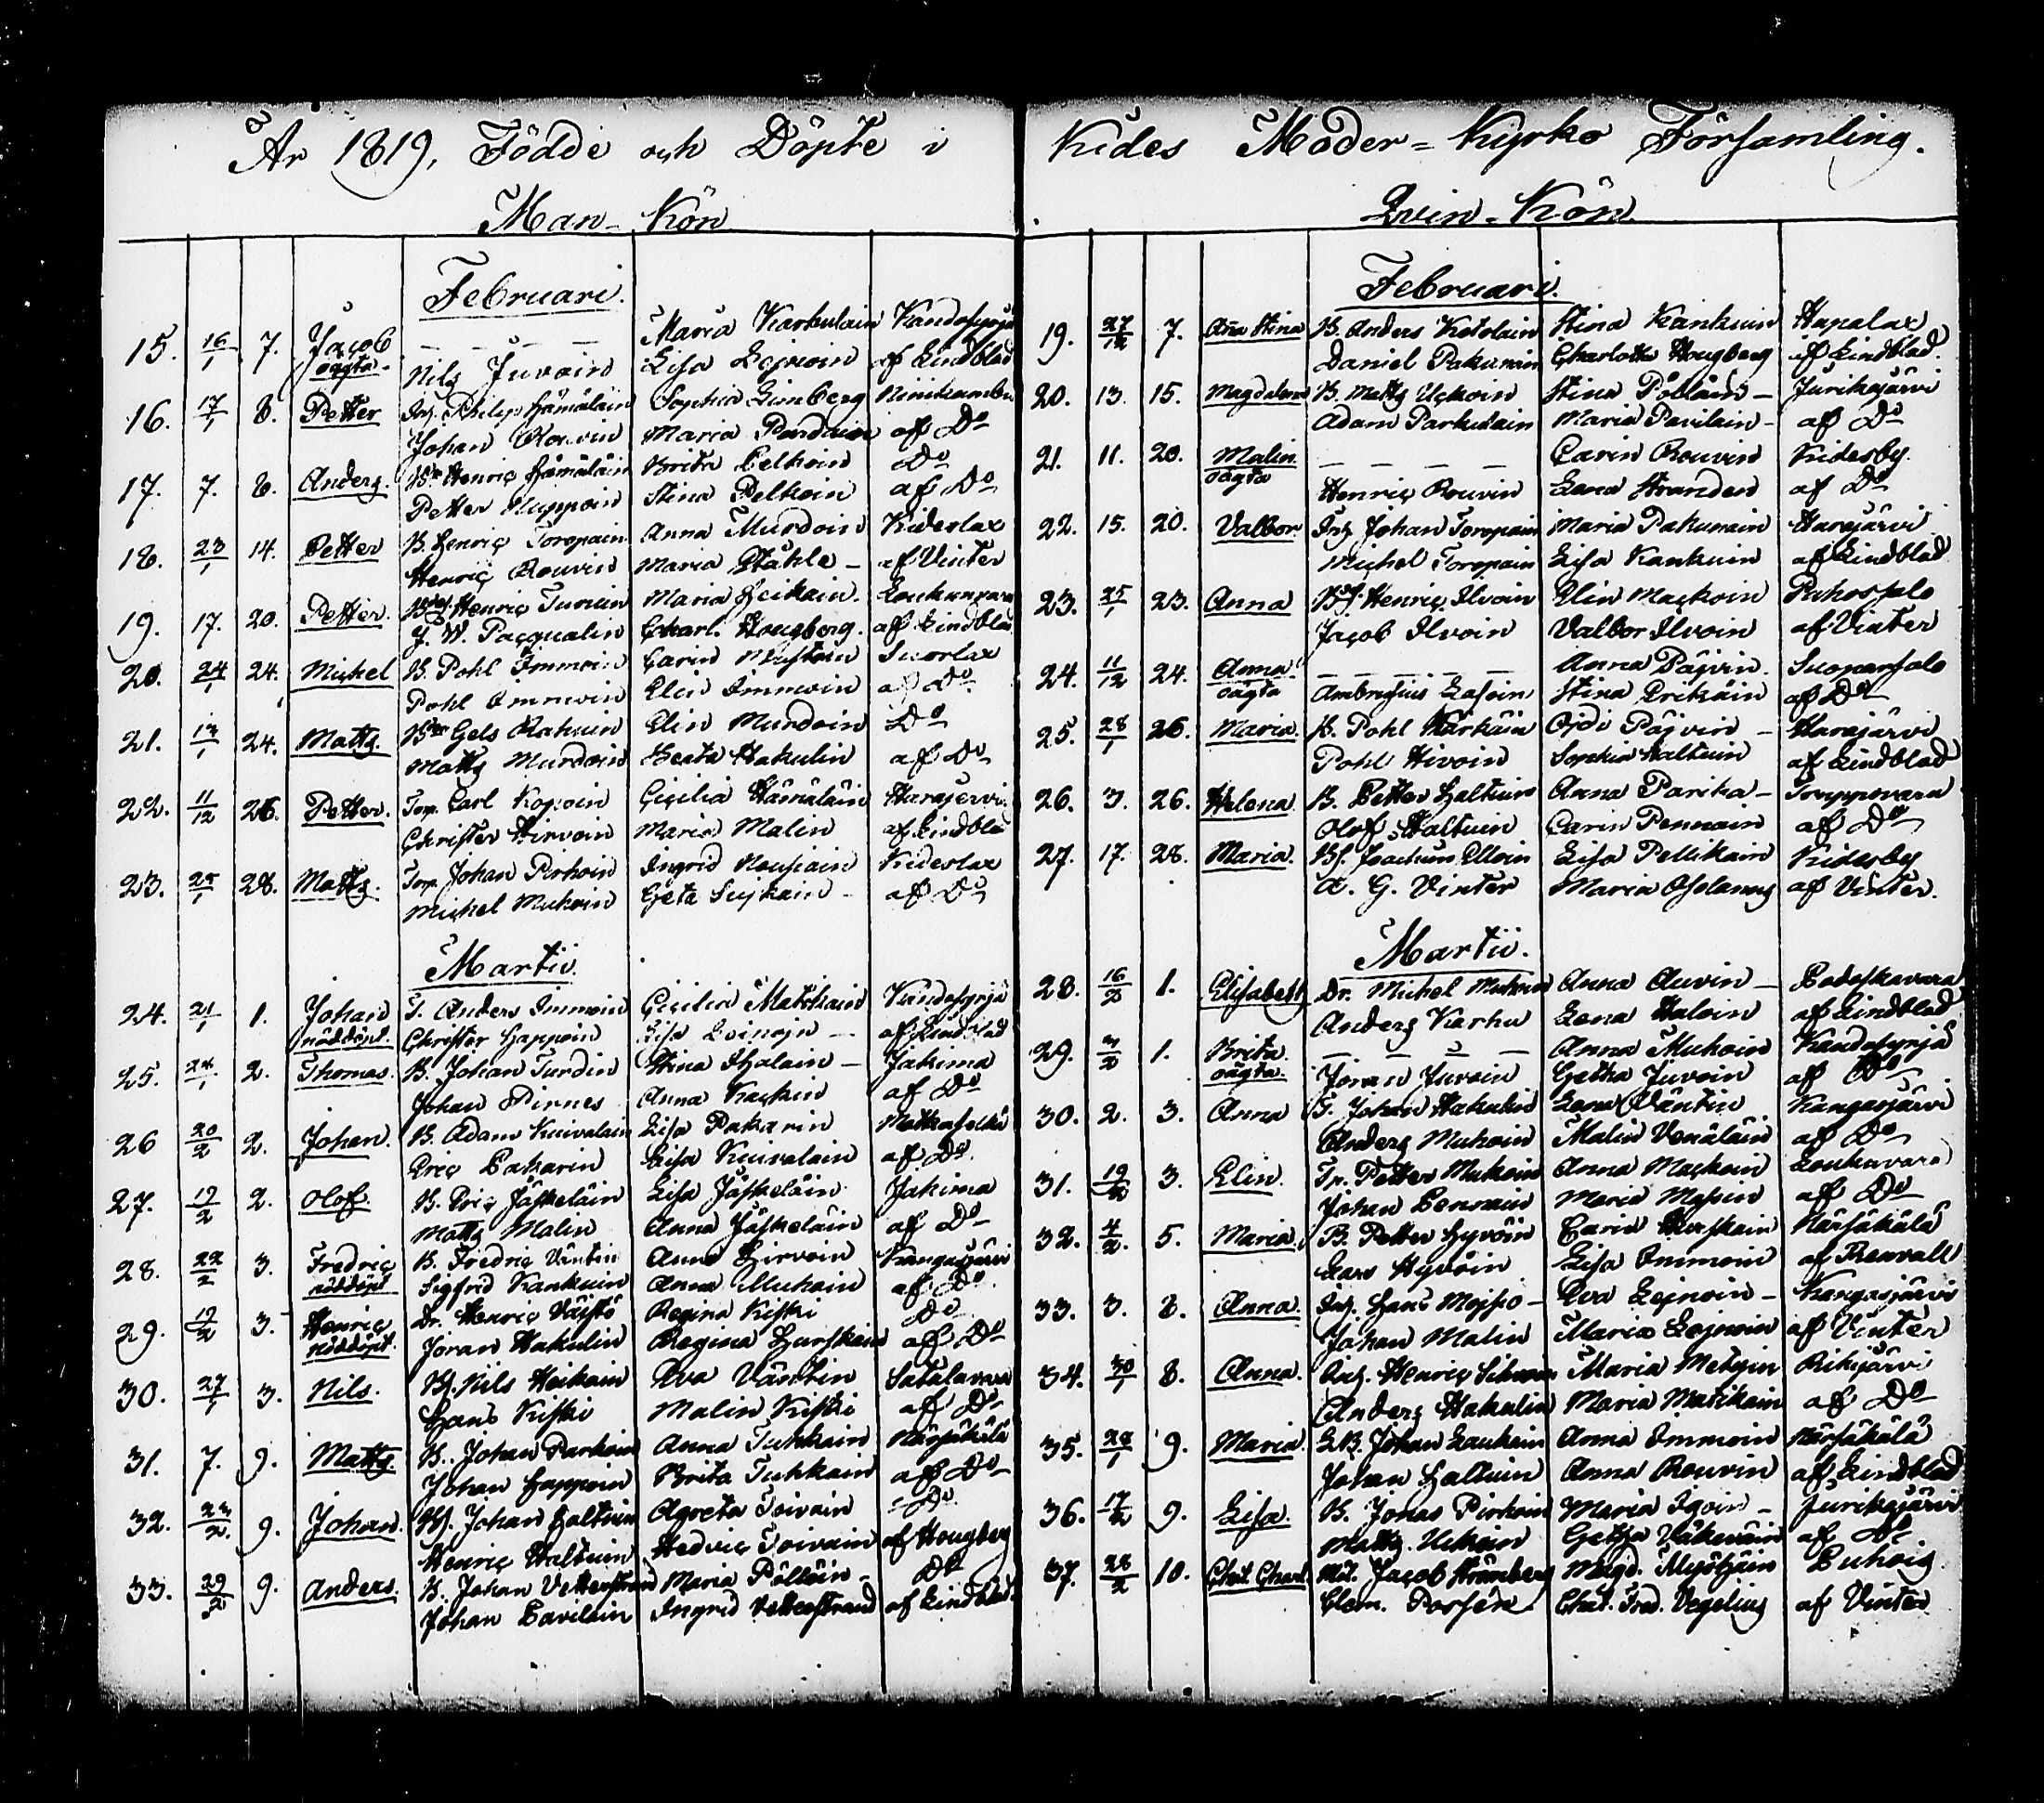 År 1819, Födde och Döpte i Kides Moder=Kyrko Församling.
Man-Kön
Februari.
15. 16/1 7. Jacob oägta. — — — — Maria Karhulain Kandosyrjä
Nils Juvoin Lisa Lejnoin af Lindblad
16. 17/1 8. Petter Inh. Philip Hämäläin Sophia Limberg Niinikumbu
Johan Rouvin Maria Pardain af Do
17. 7. 8. Anders. Henric Hämäläin Brita Pelkoin Do
Petter Nuppoin Stina Pelkoin af Do
18. 23/1 14. Petter B. Henric Toropain Anna Murdoin Kideslax
Henric Rouvin Maria Ståhle — af Vinter
19. 17. 20. Petter. Henric Turuin Maria Heikain. Loukunvara
J. W. Pacqualin Charl. Hougberg. af Lindblad
20. 24/1 24. Michel B. Pohl Immoin Carin Mustoin Suorlax
Pohl Immoin Elin Immoin af Do
21. 13/1 24. Matts. Gels Rahuin Elin Murdoin Do
Matts Murdoin Beata Hakulin af Do
22. 11/12 26. Petter. Torp. Carl Kopoin Cicilia Hämäläin Harajervi.
Christer Hirvoin Maria Malin af Lindblad
23. 25/1 28. Matts. Torp. Johan Pirhoin Ingrid Nousiain Kideslax
Michel Muhoin Geta Sujkain — af Do
Martii.
24. 21/1 1. Johan nöddöpt. T. Anders Immoin Cicilia Matikain Kandosyrjä
Christer Happoin Lisa Leinojn — af Lindblad
25. 24/1 2. Thomas. B. Johan Turdin Stina Ihalain — Jakima
Johan Pirnes Anna Kackin af Do
26 20/2 2. Johan. B. Adam Kuivalain Lisa Pakarin Matkaselkä
Eric Pakarin Lisa Kuivalain af Do.
27. 19/2 2. Olof. B. Eric Jäskeläin Lisa Jäskeläin Jakima
Matts Malin Anna Jäskeläin af Do
28. 22/2 3. Fredric nöddöpt B. Fredric Väntin Anna Hirvoin Kangasjärvi
Sigfrid Kankuin Anna Muhoin af Do.
29. 19/2 3. Henric nöddöpt. Dr. Henric Väistö Regina Kiski Do
Jöran Hakulin Regina Hurskain af Do
30. 27/1 3. Nils. Bf. Nils Heikain Eva Väntin Satulavara
Hans Kiski Malin Kiski af Do
31. 7. 9. Matts B. Johan Parkoin Anna Tuhkain Närsäkälä
Johan Happoin Brita Tuhkain af Do
32. 23/2. 9. Johan. Bf. Johan Haltuin Agreta Toivain Do
Henric Haltuin Hedvic Toivain af Hougberg
33. 29/2 9. Anders. B. Johan Vetterstrand Maria Pölläin — Do
Johan Pavilain Ingrid Vetterstrand af Lindblad.
Qvin-Kön
Februari.
19. 27/12 7. Aña Stina B. Anders Ketolain Stina Kankuin Hapalax
Daniel Pakurain Charlotta Hougberg af Lindblad.
20. 13. 15. Magdalena B. Matts Uckoin Stina Pölläin — Jurikajärvi
Adam Parkulain Maria Pavilain — af Do
21. 11. 20. Malin oägta — — — — Carin Rouvin Kidesby.
Henric Rouvin Lena Stranden af Do
22. 15. 20. Valbor. Inh. Johan Toropain Maria Pakurain Harajärvi
Michel Toropain Lisa Kankuin af Lindblad
23. 25/1 23. Anna Bf. Henric Ilvoin Elin Mackoin Puhossalo
Jacob Ilvoin Valbor Ilvoin af Vinter
24. 11/12 24. Anna oägta — — — — Anna Päjvin. Suoparsalo
Ambrosius Lasoin Stina Erikäin af Do
25. 28/1 26. Maria. B. Pohl Kärkäin Ojdi Päjvin — Harajärvi
Pohl Hivoin Sophia Haltuin af Lindblad
26. 3. 26. Helena. B. Petter Haltuin Anna Parika — Torppovara
Olof Haltuin Carin Pennain af Do
27. 17. 28. Maria. Bf. Joachim Elloin Lisa Pellikain Kidesby
A. G. Vinter Maria Oselanus af Vinter.
Martii.
28. 16/2 1. Elisabeth Dr. Michel Muhoin Anna Auvin — Podoskavara
Anders Karhu Lena Haloin af Lindblad
29. 3/2 1. Brita. oägta. — — — — Anna Muhoin Kandosyrjä
Jöran Juvoin Getha Juvoin af Do
30. 2. 3. Anna T. Johan Hakulin Lena Väntin Kangasjärvi
Anders Muhoin Malin Venäläin af Do
31. 19/2 3. Elin. Tr. Petter Muhoin Anna Mackoin Loukuvara
Johan Pennain Maria Massin af Do
32. 4/2. 5. Maria. B. Petter Hyvöin Carin Hurskain Närsäkälä
Lars Hyvöin Lisa Immoin af Renvall
33. 3. 8. Anna. Inh. Hans Mojsio — Eva Lejnoin — Kangasjärvi
Johan Malin Maria Lejnoin af Vinter
34. 30/1 8. Anna. Inh. Henric Sihvoin Maria Metsin Riksjärvi
Anders Hakulin Maria Matikain af Do
35. 28/1 9. Maria. LB. Johan Laukain Anna Immoin Närsäkälä
Johan Haltuin Anna Rouvin af Lindblad
36. 17/2 9. Lisa. B. Jonas Pirhoin Maria Igoin — Jurikajärvi
Matts. Uckoin Getha Väkeväin af Do
37. 28/2 10. Chat. Charl. Måt. Jacob Strömberg Magd. Mustjäin Puhois
Clem. Porsén. Chat. Fred. Vegelius af Vinter